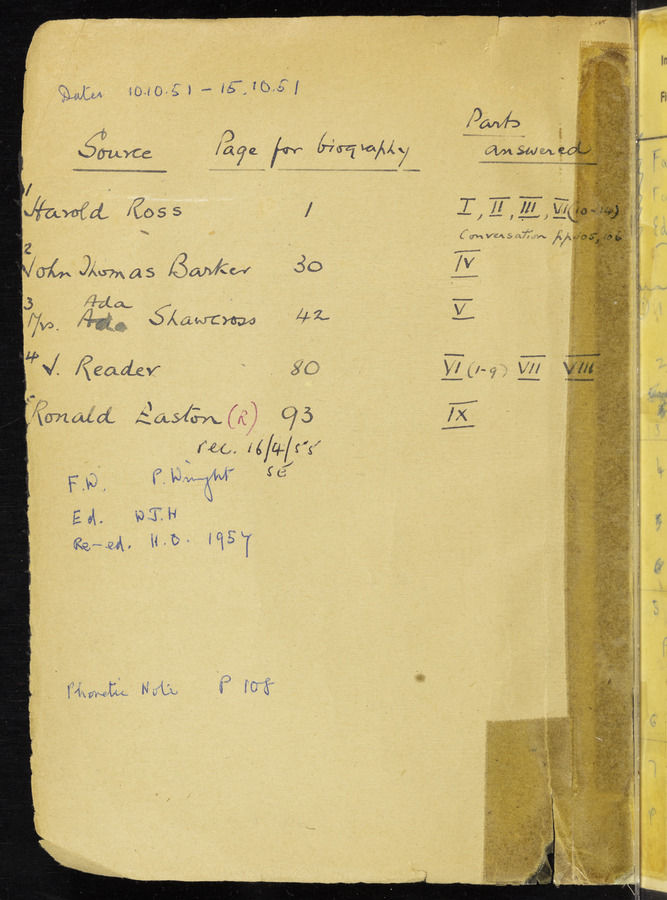 Dates 10.10.51 – 15.10.51
Source Page for biography Parts answered
1 Harold Ross 1 I, II, III, VI (10-14)
Conversation pp 105, 106
2 John Thomas Barker 30 IV
3 Mrs. Ada Shawcross 42 V
4 J. Reader 80 VI (1-9) VII VIII
5 Ronald Easton (R) 93 IX
rec. 16/4/55
SE
F.W. P. Wright
Ed. W.J.H
Re-ed. H.O. 1957
Phonetic Note P 108